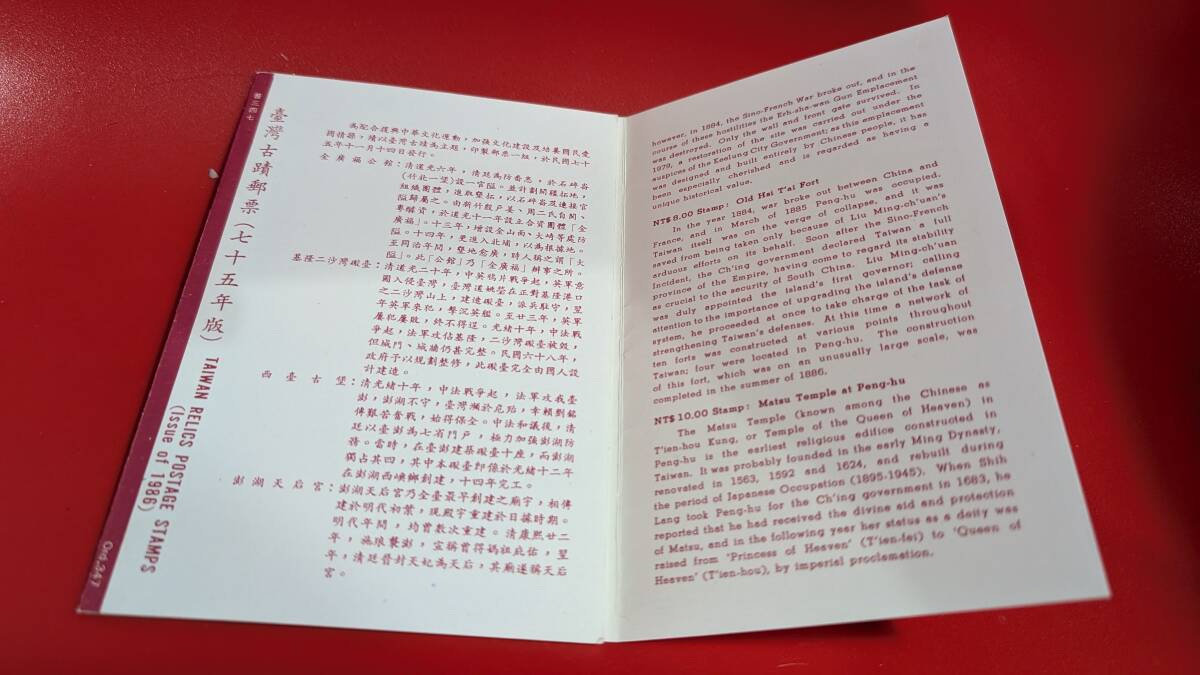 普三四七
臺灣古蹟郵票（七十五年版）
TAIWAN RELICS POSTAGE STAMPS
(Issue of 1986)
Ord.247
為配合復興中華文化運動，加強文化建設及培養國民愛
國情操，續以臺灣古蹟為主題，印製郵票一組，於民國七十
五年十一月十四日發行。
金廣福公館：清道光六年，清廷為防番患，於石碎崙
(竹北一堡)設一官隘。並計劃開疆拓地，
組織團體，進取墾拓，以石碎崙及連接官
隘歸屬之。由新竹殷戶姜、周二氏自閩、
粵醵資，於道光十一年設立合資團體「金
廣福」。十三年，增設金山面、大崎等處防
隘。十四年，更進入北埔，以為根據地。
至同治年間，墾地愈廣，時人稱之謂「大
隘」。此「公館」乃「金廣福」辦事之所。
基隆二沙灣礮臺：清道光二十年，中英鴉片戰爭起，英軍意
圖入侵臺灣，臺灣道姚瑩在正對基隆港口
之二沙灣山上，建造礮臺，派兵駐守，翌
年英軍來犯，擊沉英艦。至廿三年，英軍
屢犯屢敗，終不得逞。光緒十年，中法戰
爭起，法軍攻佔基隆，二沙灣礮臺被毀，
但城門、城牆仍甚完整。民國六十八年，
政府予以規劃整修，此礮臺完全由國人設
計建造。
西臺古堡：清光緒十年，中法戰爭起，法軍攻我臺
澎，澎湖不守，臺灣瀕於危殆，幸賴劉銘
傳艱苦奮戰，始得保全。中法和議後，清
廷以臺澎為七省門戶，極力加強澎湖防
務。當時，在臺澎建築礮臺十座，而澎湖
獨占其四，其中本礮臺即係於光緒十二年
在澎湖西嶼鄉創建，十四年完工。
澎湖天后宮：澎湖天后宮乃全臺最早創建之廟宇，相傳
建於明代初葉，現殿宇重建於日據時期。
明代年間，均曾數次重建。清康熙廿二
年，施琅襲澎，宣稱曾得媽祖庇佑，翌
年，清廷晉封天妃為天后，其廟遂稱天后
宮。
however, in 1884, the Sino-French War broke out, and in the
course of these hostilities the Erh-sha-wan Gun Emplacement
was destroyed. Only the wall and front gate survived. In
1979, a restoration of the site was carried out under the
auspices of the Keelung City Government; as this emplacement
was designed and built entirely by Chinese people, it has
been especially cherished and is regarded as having a
unique historical value.
NT$ 8.00 Stamp: Old Hsi T'ai Fort
In the year 1884, war broke out between China and
France, and in March of 1885 Peng-hu was occupied.
Taiwan itself was on the verge of collapse, and it was
saved from being taken only because of Liu Ming-ch'uan's
arduous efforts on its behalf. Soon after the Sino-French
Incident, the Ch'ing government declared Taiwan a full
province of the Empire, having come to regard its stability
as crucial to the security of South China. Liu Ming-ch'uan
was duly appointed the island's first governor; calling
attention to the importance of upgrading the island's defense
system, he proceeded at once to take charge of the task of
strengthening Taiwan's defenses. At this time a network of
ten forts was constructed at various points throughout
Taiwan; four were located in Peng-hu. The construction
of this fort, which was on an unusually large scale, was
completed in the summer of 1886.
NT$ 10.00 Stamp: Matsu Temple at Peng-hu
The Matsu Temple (known among the Chinese as
T'ien-hou Kung, or Temple of the Queen of Heaven) in
Peng-hu is the earliest religious edifice constructed in
Taiwan. It was probably founded in the early Ming Dynasty,
renovated in 1563, 1592 and 1624, and rebuilt during
the period of Japanese Occupation (1895-1945). When Shih
Lang took Peng-hu for the Ch'ing government in 1683, he
reported that he had received the divine aid and protection
of Matsu, and in the following year her status as a deity was
raised from 'Princess of Heaven' (T'ien-fei) to 'Queen of
Heaven' (T'ien-hou), by imperial proclamation.